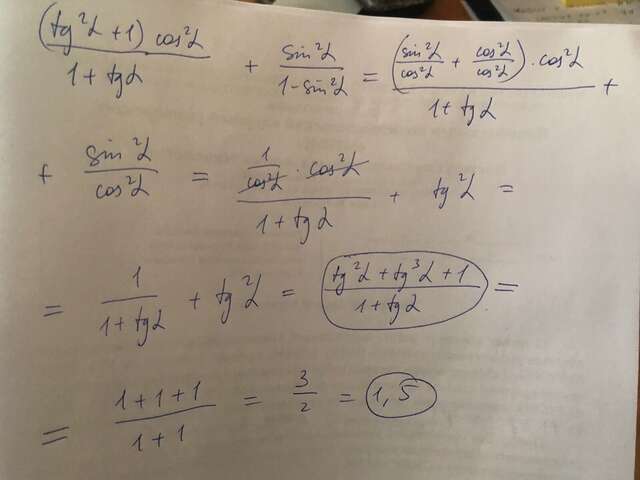 ((tg²α + 1) cos²α)/(1 + tgα) + sin²α/(1 - sin²α) = ((sin²α/cos²α + cos²α/cos²α) · cos²α)/(1 + tgα) +
+ sin²α/cos²α = (1/cos²α · cos²α)/(1 + tgα) + tg²α =
= 1/(1 + tgα) + tg²α = (tg²α + tg³α + 1)/(1 + tgα) =
= (1 + 1 + 1)/(1 + 1) = 3/2 = 1,5